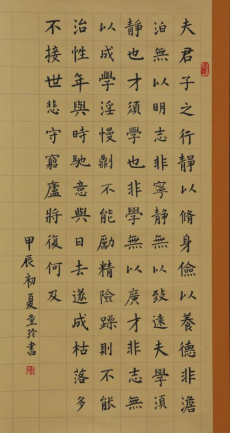 夫君子之行靜以脩身儉以養德非澹
泊無以明志非寧靜無以致遠夫學須
靜也才須學也非學無以廣才非志無
以成學淫慢則不能勵精險躁則不能
治性年與時馳意與日去遂成枯落多
不接世悲守窮廬將復何及
甲辰初夏玲書